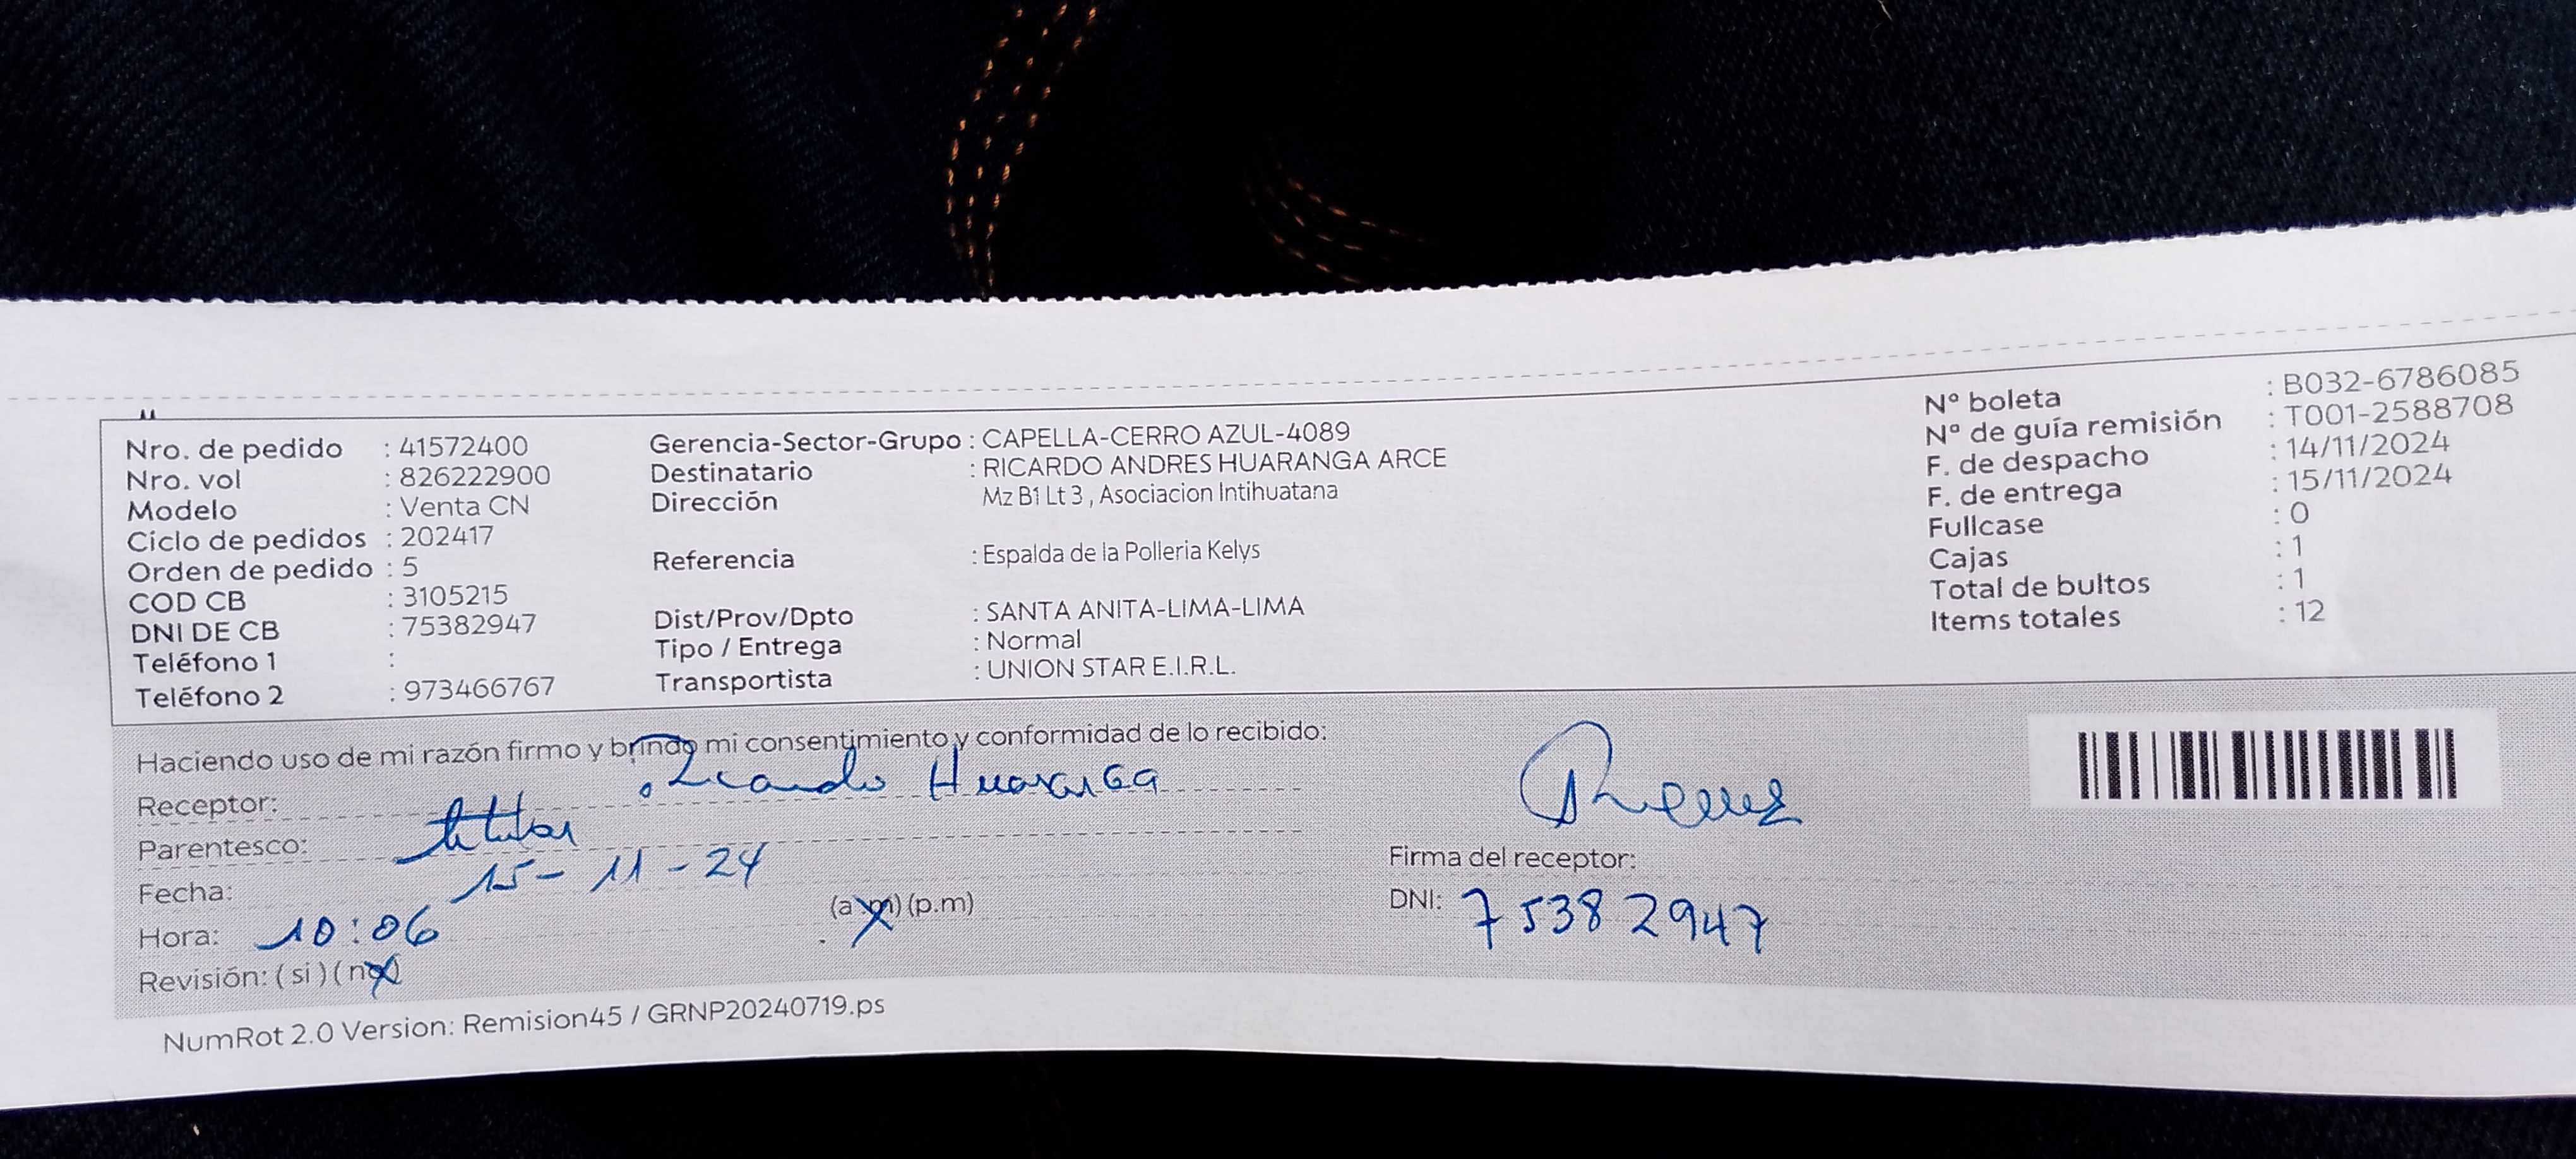 Nro. de pedido : 41572400
Nro. vol : 826222900
Modelo : Venta CN
Ciclo de pedidos : 202417
Orden de pedido : 5
COD CB : 3105215
DNI DE CB : 75382947
Teléfono 1 :
Teléfono 2 : 973466767
Gerencia-Sector-Grupo : CAPELLA-CERRO AZUL-4089
Destinatario : RICARDO ANDRES HUARANGA ARCE
Dirección Mz B1 Lt 3 , Asociacion Intihuatana
Referencia : Espalda de la Polleria Kelys
Dist/Prov/Dpto : SANTA ANITA-LIMA-LIMA
Tipo / Entrega : Normal
Transportista : UNION STAR E.I.R.L.
Nº boleta : B032-6786085
Nº de guía remisión : T001-2588708
F. de despacho : 14/11/2024
F. de entrega : 15/11/2024
Fullcase : 0
Cajas : 1
Total de bultos : 1
Items totales : 12
Haciendo uso de mi razón firmo y brindo mi consentimiento y conformidad de lo recibido:
Receptor: Huaranga
Parentesco: titular
Fecha: 15-11-24
Hora: 10:06 (a.m) (p.m)
Revisión: ( si ) ( no )
Firma del receptor:
DNI: 75382947
NumRot 2.0 Version: Remision45 / GRNP20240719.ps